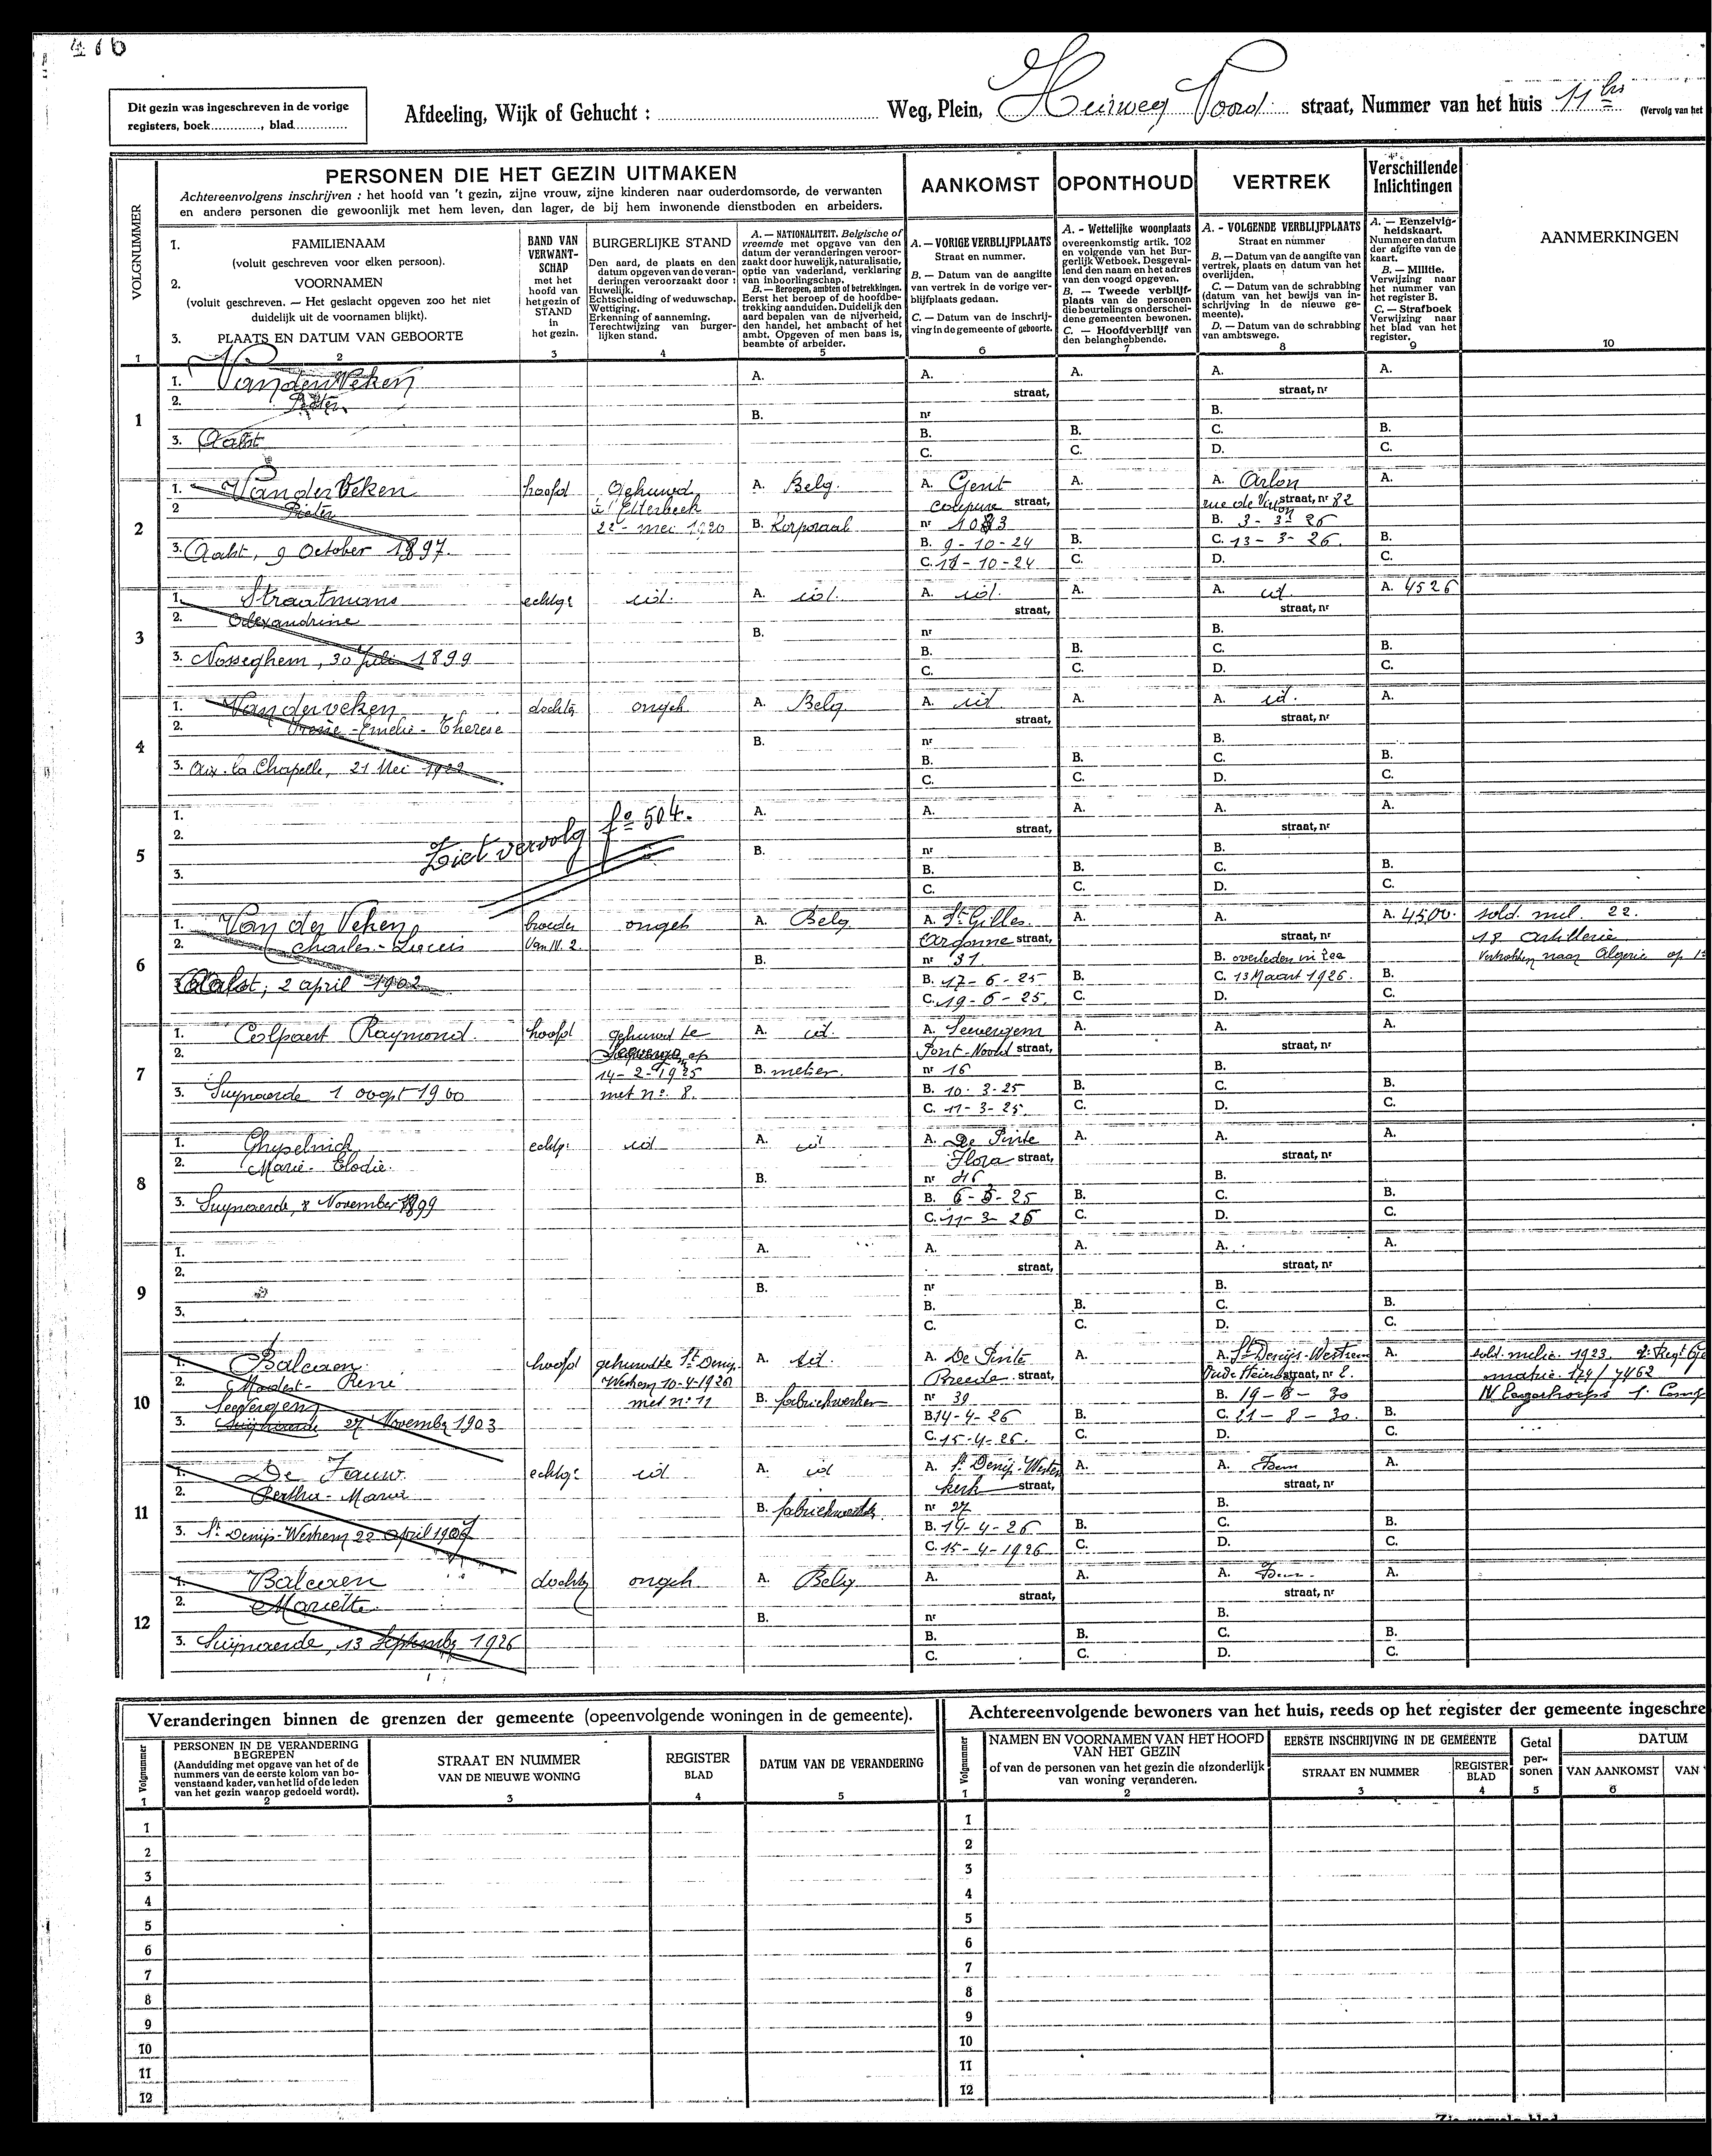 476
Dit gezin was ingeschreven in de vorige
registers, boek............., blad..............
Afdeeling, Wijk of Gehucht :
Weg, Plein, Heirweg Noord straat, Nummer van het huis 11bis (Vervolg van het
PERSONEN DIE HET GEZIN UITMAKEN
Achtereenvolgens inschrijven : het hoofd van 't gezin, zijne vrouw, zijne kinderen naar ouderdomsorde, de verwanten
en andere personen die gewoonlijk met hem leven, dan lager, de bij hem inwonende dienstboden en arbeiders.
AANKOMST
OPONTHOUD
VERTREK
Verschillende
Inlichtingen
AANMERKINGEN
VOLGNUMMER
1. FAMILIENAAM
(voluit geschreven voor elken persoon).
2. VOORNAMEN
(voluit geschreven. — Het geslacht opgeven zoo het niet
duidelijk uit de voornamen blijkt).
3. PLAATS EN DATUM VAN GEBOORTE
BAND VAN
VERWANT-
SCHAP
met het
hoofd van
het gezin of
STAND
in
het gezin.
BURGERLIJKE STAND
Den aard, de plaats en den
datum opgeven van de veran-
deringen veroorzaakt door :
Huwelijk.
Echtscheiding of weduwschap.
Wettiging.
Erkenning of aanneming.
Terechtwijzing van burger-
lijken stand.
A. — NATIONALITEIT. Belgische of
vreemde met opgave van den
datum der veranderingen veroor-
zaakt door huwelijk, naturalisatie,
optie van vaderland, verklaring
van inboorlingschap.
B. — Beroepen, ambten of betrekkingen.
Eerst het beroep of de hoofdbe-
trekking aanduiden. Duidelijk den
aard bepalen van de nijverheid,
den handel, het ambacht of het
ambt. Opgeven of men baas is,
beambte of arbeider.
A. — VORIGE VERBLIJFPLAATS
Straat en nummer.
B. — Datum van de aangifte
van vertrek in de vorige ver-
blijfplaats gedaan.
C. — Datum van de inschrij-
ving in de gemeente of geboorte.
A. - Wettelijke woonplaats
overeenkomstig artik. 102
en volgende van het Bur-
gerlijk Wetboek. Desgeval-
lend den naam en het adres
van den voogd opgeven.
B. — Tweede verblijf-
plaats van de personen
die beurtelings onderschei-
dene gemeenten bewonen.
C. — Hoofdverblijf van
den belanghebbende.
A. - VOLGENDE VERBLIJFPLAATS
Straat en nummer
B. — Datum van de aangifte van
vertrek, plaats en datum van het
overlijden.
C. — Datum van de schrabbing
(datum van het bewijs van in-
schrijving in de nieuwe ge-
meente).
D. — Datum van de schrabbing
van ambtswege.
A. — Eenzelvig-
heidskaart.
Nummer en datum
der afgifte van de
kaart.
B. — Militie.
Verwijzing naar
het nummer van
het register B.
C. — Strafboek
Verwijzing naar
het blad van het
register.
1 2 3 4 5 6 7 8 9 10
1
1. Van den Veken A. A. A. A. A.
2. Pieter straat, straat, nr
B. nr B.
3. Aalst B. B. C. B.
C. C. D. C.
2
1. Van der Veken hoofd Gehuwd A. Belg. A. Gent A. A. Arlon A.
2 Pieter à Etterbeek coupure straat, rue de Virton straat, nr 82
22 - mei 1920 B. Korporaal nr 1083 B. 3-3-26
3. Aalst, 9 October 1897. B. 9-10-24 B. C. 13-3-26. B.
C. 11-10-24 C. D. C.
3
1. Straatmans echtge id. A. id. A. id. A. A. id. A. 4526
2. Alexandrine straat, straat, nr
B. nr B.
3. Nosseghem, 30 Juli 1899 B. B. C. B.
C. C. D. C.
4
1. Van der veken dochter ongeh A. Belg A. id A. A. id. A.
2. -Emelie-Therese straat, straat, nr
B. nr B.
3. Aix-la Chapelle, 21 Mei 1922 B. B. C. B.
C. C. D. C.
5
1. A. A. A. A. A.
2. Ziet vervolg fo 504. straat, straat, nr
B. nr B.
3. B. B. C. B.
C. C. D. C.
6
1. Van der Veken broeder ongeh A. Belg A. St Gilles A. A. A. 4500. sold. mil. 22.
2. Charles-Louis van N. 2. Argonne straat, straat, nr 18 Artillerie
B. nr 31 B. overleden in zee Vertrokken naar Algerie op
3. Aalst, 2 april 1902 B. 17-6-25 B. C. 13 Maart 1926. B.
C. 19-6-25. C. D. C.
7
1. Colpaert Raymond. hoofd gehuwd te A. id. A. Seevergem A. A. A.
2. op Pont-Noord straat, straat, nr
14-2-1925 B. metser. nr 16 B.
3. Suynaerde 1 oogst 1900 met no. 8. B. 10-3-25 B. C. B.
C. 11-3-25. C. D. C.
8
1. Ghyselinck echtge id A. id A. De Pinte A. A. A.
2. Marie-Elodie. Flora straat, straat, nr
B. nr 46 B.
3. Suynaerde, 8 November 1899 B. 6-3-25 B. C. B.
C. 11-3-25 C. D. C.
9
1. A. A. A. A. A.
2. straat, straat, nr
B. nr B.
3. B. B. C. B.
C. C. D. C.
10
1. Balcaen hoofd gehuwd te St Denijs- A. id. A. De Pinte A. A. St Denijs-Westrem A. sold. milic. 1923. 2e Regt
2. Modest-René Westrem 10-4-1926 Breede straat, Oude Heirw straat, nr 8. matric. 124/7462
Seevergem met no 11 B. fabriekwerker nr 30 B. 19-8-30 IV
3. Suijnaerde 27 November 1903 B. 14-4-26 B. C. 21-8-30. B.
C. 15-4-26. C. D. C.
11
1. De Fauw echtge id A. id A. St Denijs-Westrem A. A. Idem A.
2. Bertha-Marie kerk straat, straat, nr
B. fabriekwerkster nr 27 B.
3. St Denijs-Westrem 22 April 1907 B. 14-4-26 B. C. B.
C. 15-4-1926 C. D. C.
12
1. Balcaen dochter ongeh A. Belg A. A. A. Idem A.
2. Mariette straat, straat, nr
B. nr B.
3. Suijnaerde, 13 September 1926 B. B. C. B.
C. C. D. C.
Veranderingen binnen de grenzen der gemeente (opeenvolgende woningen in de gemeente).
Volgnummer
PERSONEN IN DE VERANDERING
BEGREPEN
(Aanduiding met opgave van het of de
nummers van de eerste kolom van bo-
venstaand kader, van het lid of de leden
van het gezin waarop gedoeld wordt).
STRAAT EN NUMMER
VAN DE NIEUWE WONING
REGISTER
BLAD
DATUM VAN DE VERANDERING
1 2 3 4 5
1
2
3
4
5
6
7
8
9
10
11
12
Achtereenvolgende bewoners van het huis, reeds op het register der gemeente ingeschre
Volgnummer
NAMEN EN VOORNAMEN VAN HET HOOFD
VAN HET GEZIN
of van de personen van het gezin die afzonderlijk
van woning veranderen.
EERSTE INSCHRIJVING IN DE GEMEENTE
STRAAT EN NUMMER
REGISTER
BLAD
Getal
per-
sonen
DATUM
VAN AANKOMST VAN
1 2 3 4 5 6
1
2
3
4
5
6
7
8
9
10
11
12